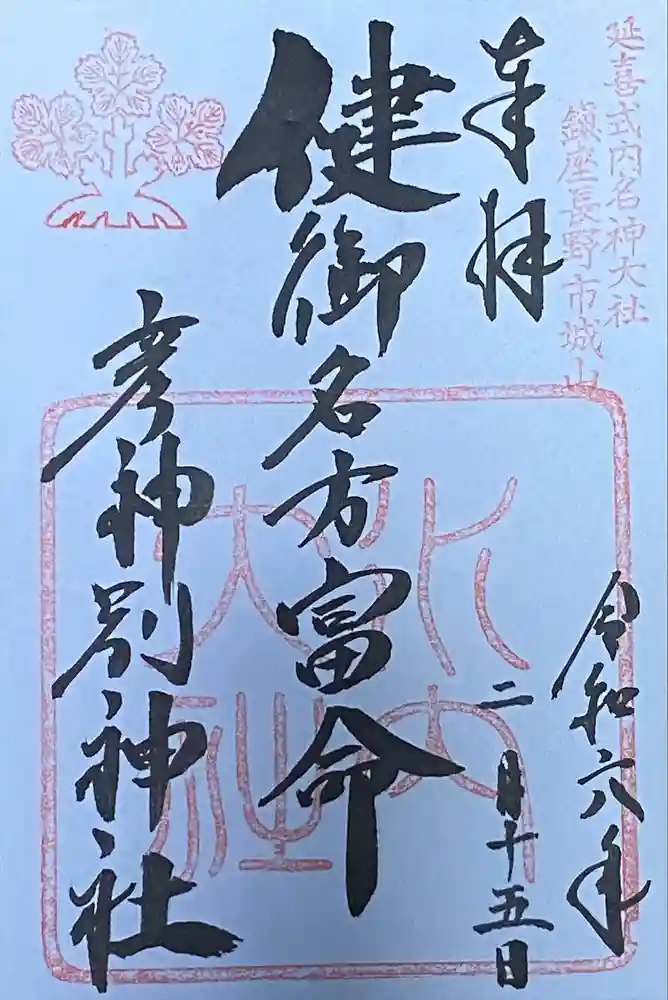 延喜式内名神大社
鎮座長野市城山
奉拝
令和六年
二月十五日
健御名方富命
彦神別神社
水内
大社